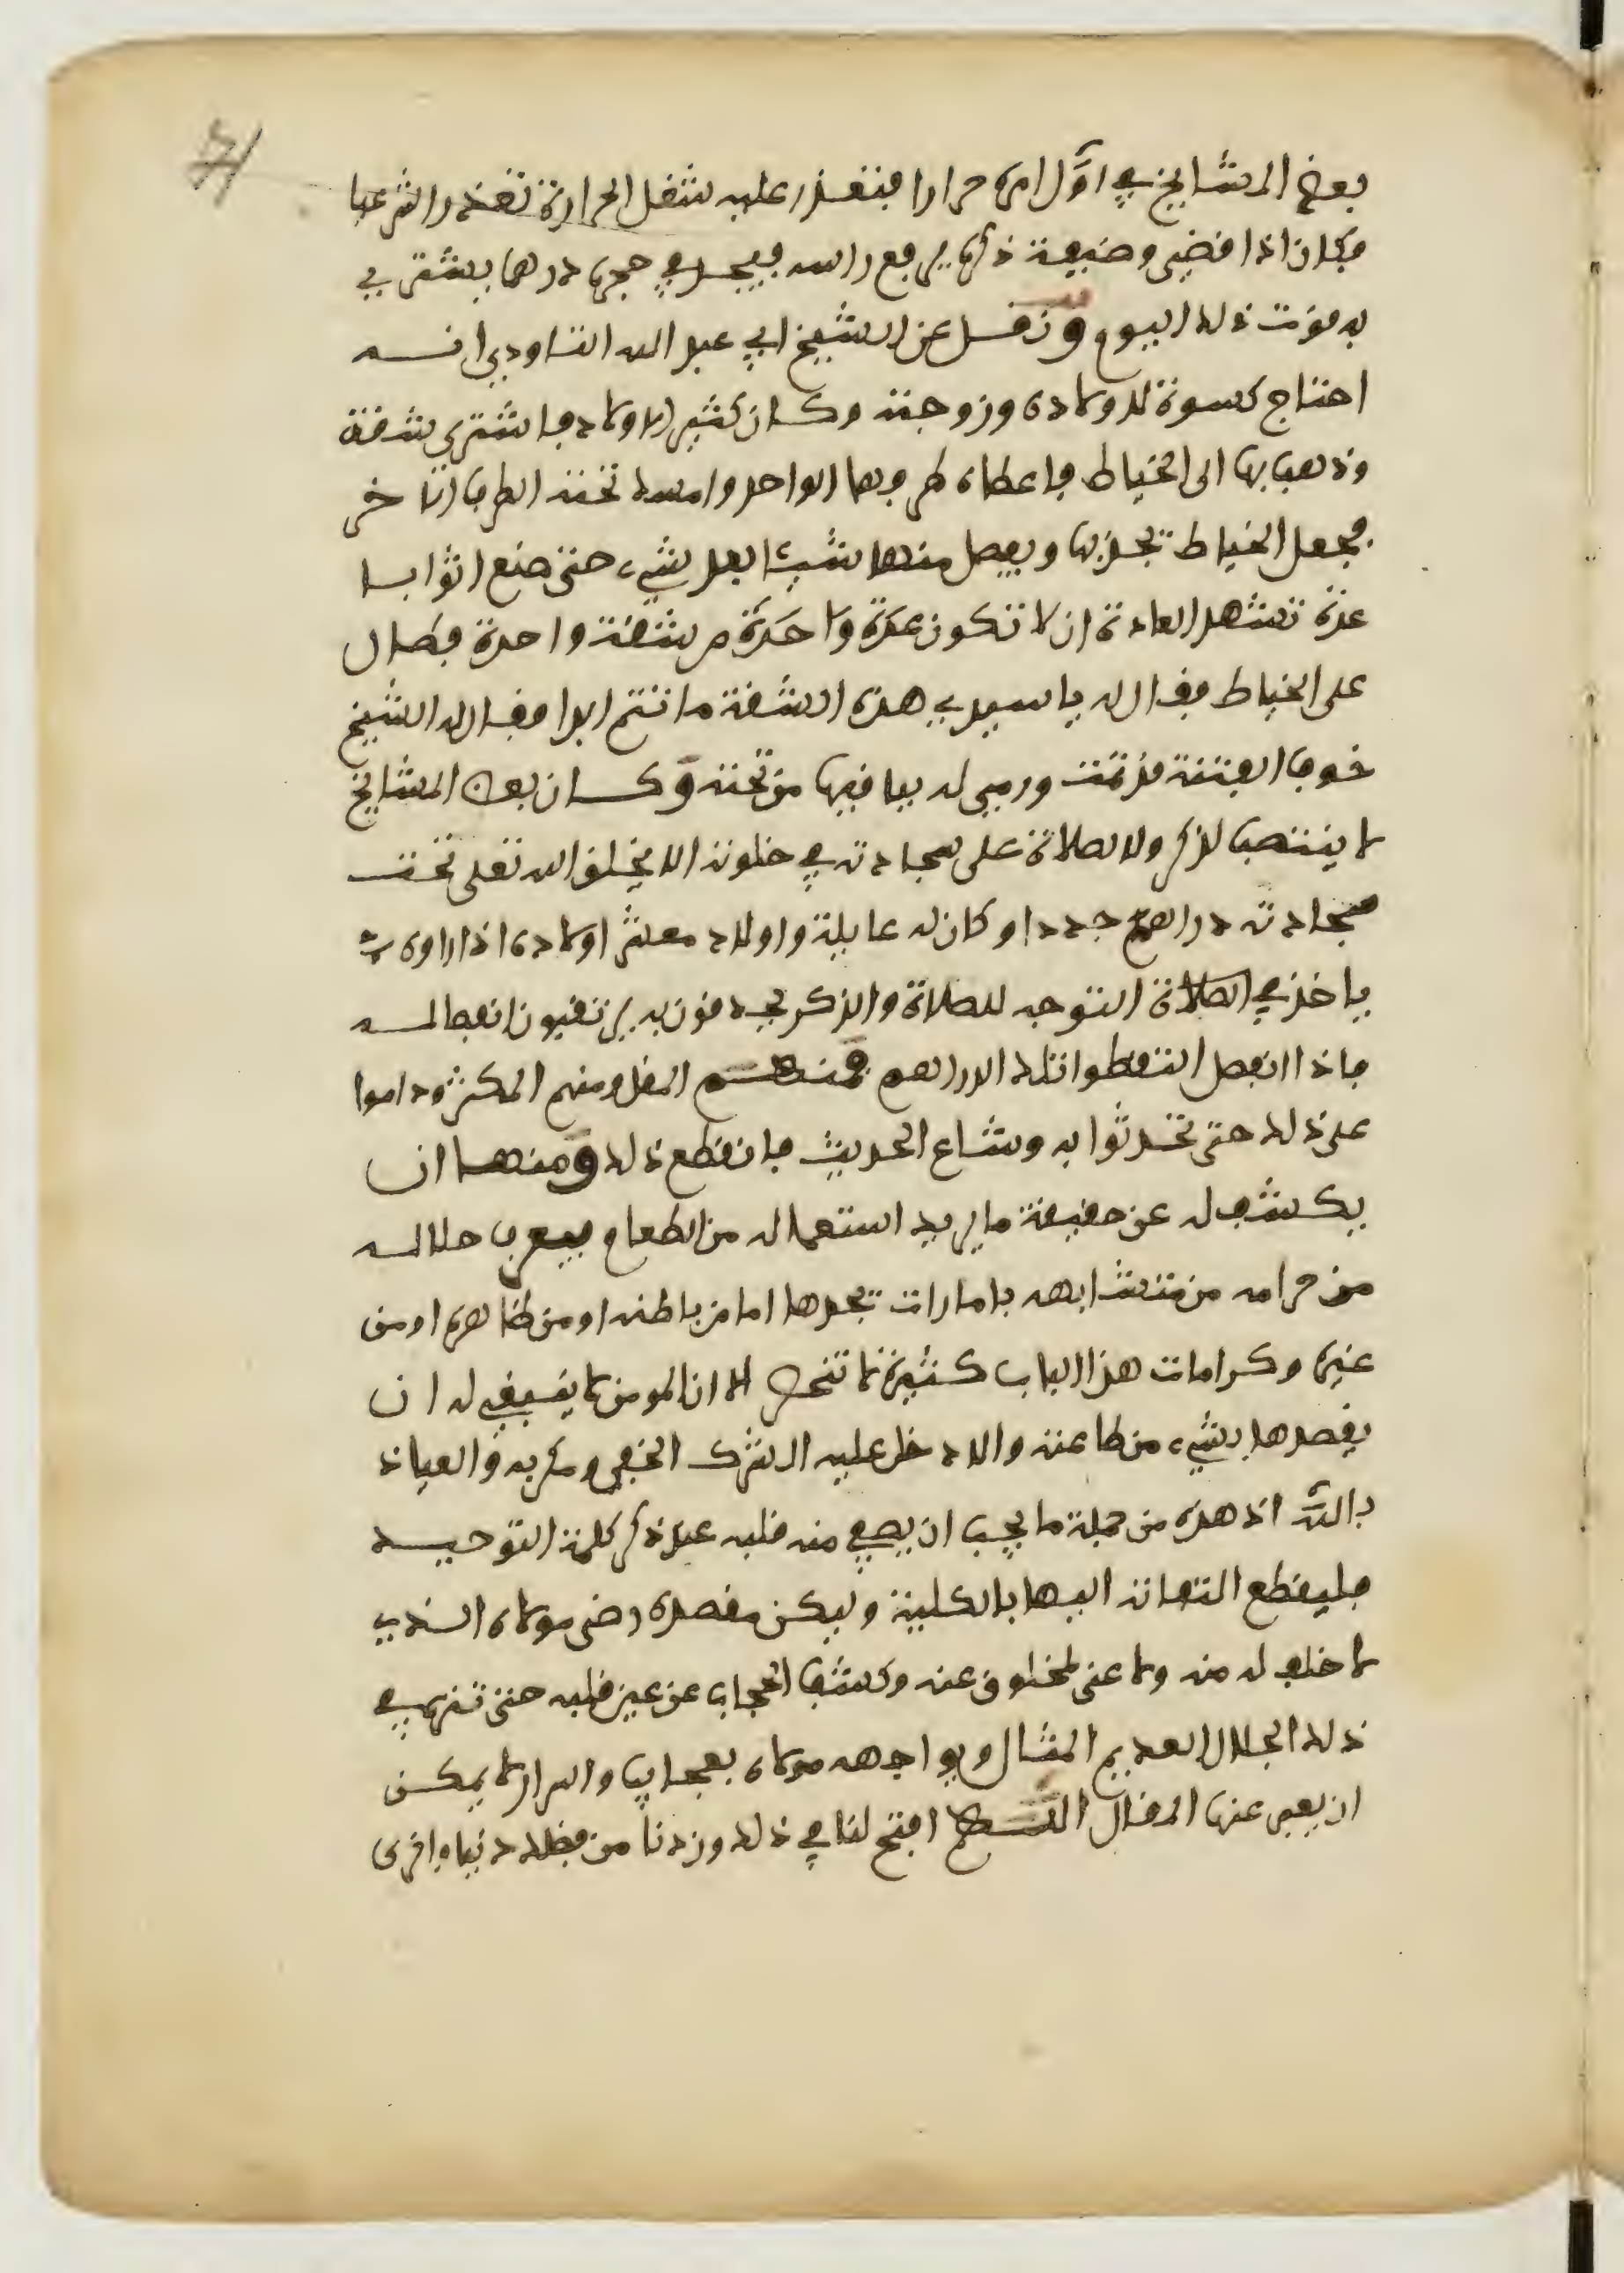 بعض المشايخ في اول امره حرارا فتعذر عليه شغل الحرارة تعذرا شرعيا
فكان اذا قضى وضيفة ذكره يرفع راسه فيجد في حجره درهما يشتري
به قوت ذلك اليوم ونقل عن الشيخ ابي عبد الله التاودي انه
احتاج كسوة لاولاده وزوجته وكان كثير الاولاد فاشترى شقة
وذهب بها الى الخياط فاعطاه طرفها الواحد وامسك تحته الطرف الاخر
فجعل الخياط يجذبها ويفصل منها شيئا بعد شيء حتى صنع اثوابا
عدة تشهد العادة ان لا تكون عدة واحدة من شقة واحدة فطال
على الخياط فقال له يا سيدي هذه الشقة ما تتم ابدا فقال له الشيخ
خوف الفتنة قد تمت ورمى له بباقيها من تحته وكان بعض المشايخ
لا ينتصب للذكر ولا لصلاة على سجادته في خلوته الا يخلق الله تعلى تحت
سجادته دراهم جددا وكان له عايلة واولاد معشر اولاده اذا راوه
ياخذ في الصلاة التوجه للصلاة والذكر يحدقون به يرتقبون انفصاله
فاذا انفصل التقطوا تلك الدراهم فمنهم المقل ومنهم المكثر وداموا
على ذلك حتى تحدثوا به وشاع الحديث فانقطع ذلك ومنها ان
يكشف له عن حقيقة ما يريد استعماله من الطعام فيعرف حلاله
من حرامه من متشابهه بامارات يجدها اما من باطنه او من ظاهره او من
غيره وكرامات هذا الباب كثيرة لا تنحصر الا ان المومن لا ينبغي له ان
يقصدها بشيء من طاعته والا دخل عليه الشرك الخفي ومكر به والعياذ
بالله اذ هذه من جملة ما يجب ان يصفي منه قلبه عند ذكر كلمة التوحيد
فليقطع التفاته اليها بالكلية وليكن مقصده رضى مولاه الذي
لا خلف له منه ولا غنى لمخلوق عنه وكشف الحجاب عن عين قلبه حتى تنزه في
ذلك الجلال العديم المثال ويواجهه مولاه بعجايب واسرار لا يمكن
ان يعبر عنها المقال اللهم افتح لنا في ذلك وزدنا من فضلك دنيا واخرى